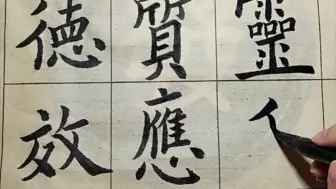 靈
質應
德效